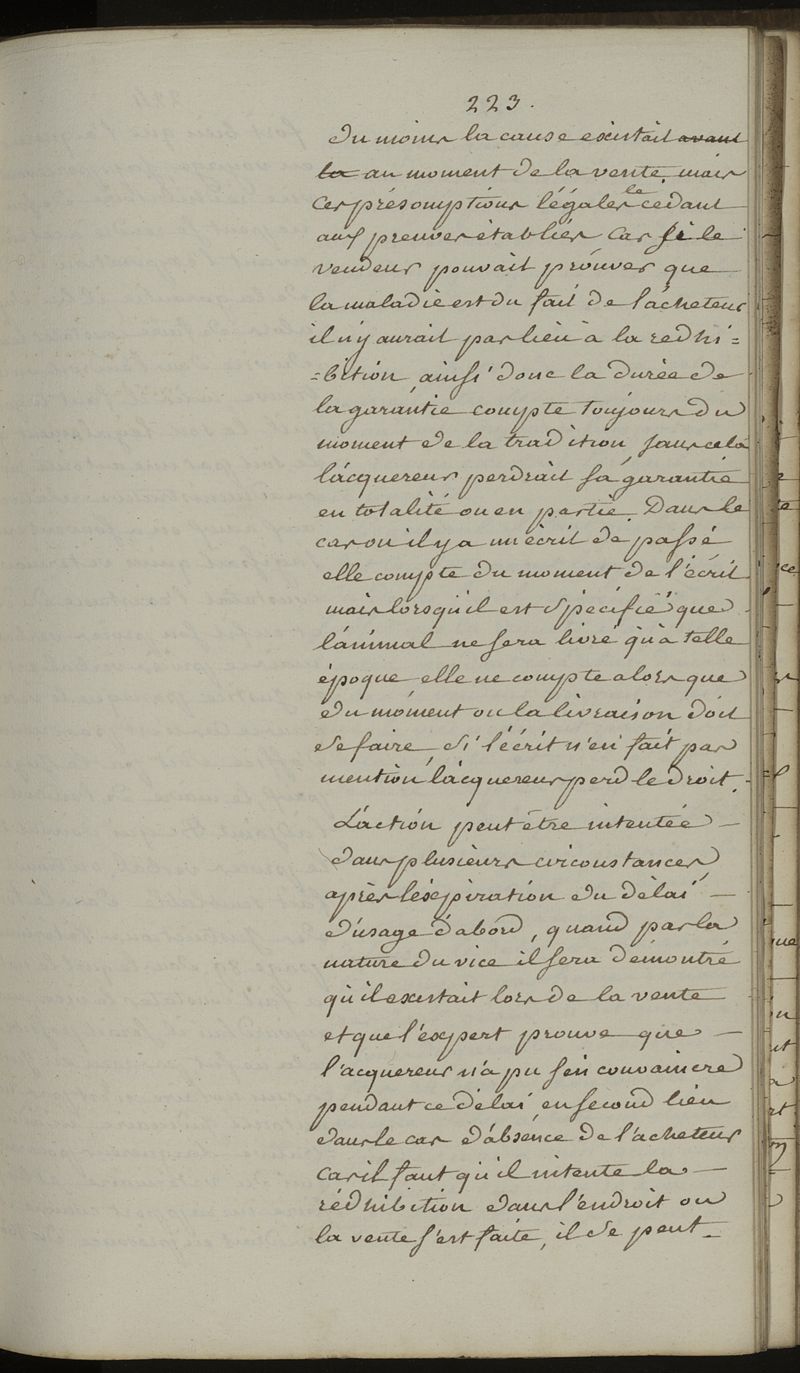 223.
du moins la cause existait ~~avant~~
~~la~~ au moment de la vente, mais
ces présomptions légales le cedant
aux preuves établies car si le
vendeur pouvait prouver que
la maladie est du fait de l'acheteur
il n'y aurait pas lieu à la redhi=
=bition, ainsi donc la durée de
la garantie compte toujours du
moment de la tradition, sans cela
l'acquereur perdrait sa garantie
en totalité ou en partie. Dans le
cas ou il y a un écrit de passé
elle compte du moment de l'écrit
mais lorsqu'il est spécifié que
l'animal ne sera livré qu'à telle
époque elle ne compte alors que
du moment ou la livraison doit
se faire, si l'écrit n'en fait pas
mention l'acquereur perd le droit.
L'action peut être intentée
dans plusieurs circonstances
après l'expiration du délai
d'usage d'abord, quand par la
nature du vice il sera démontré
qu'il existait lors de la vente
et que l'expert prouve que
l'acquereur n'a pu s'en convaincre
pendant ce délai, en second lieu
dans le cas d'absence de l'acheteur
car il faut qu'il intente la
rédhibition dans l'endroit ou
la vente s'est faite, il se peut